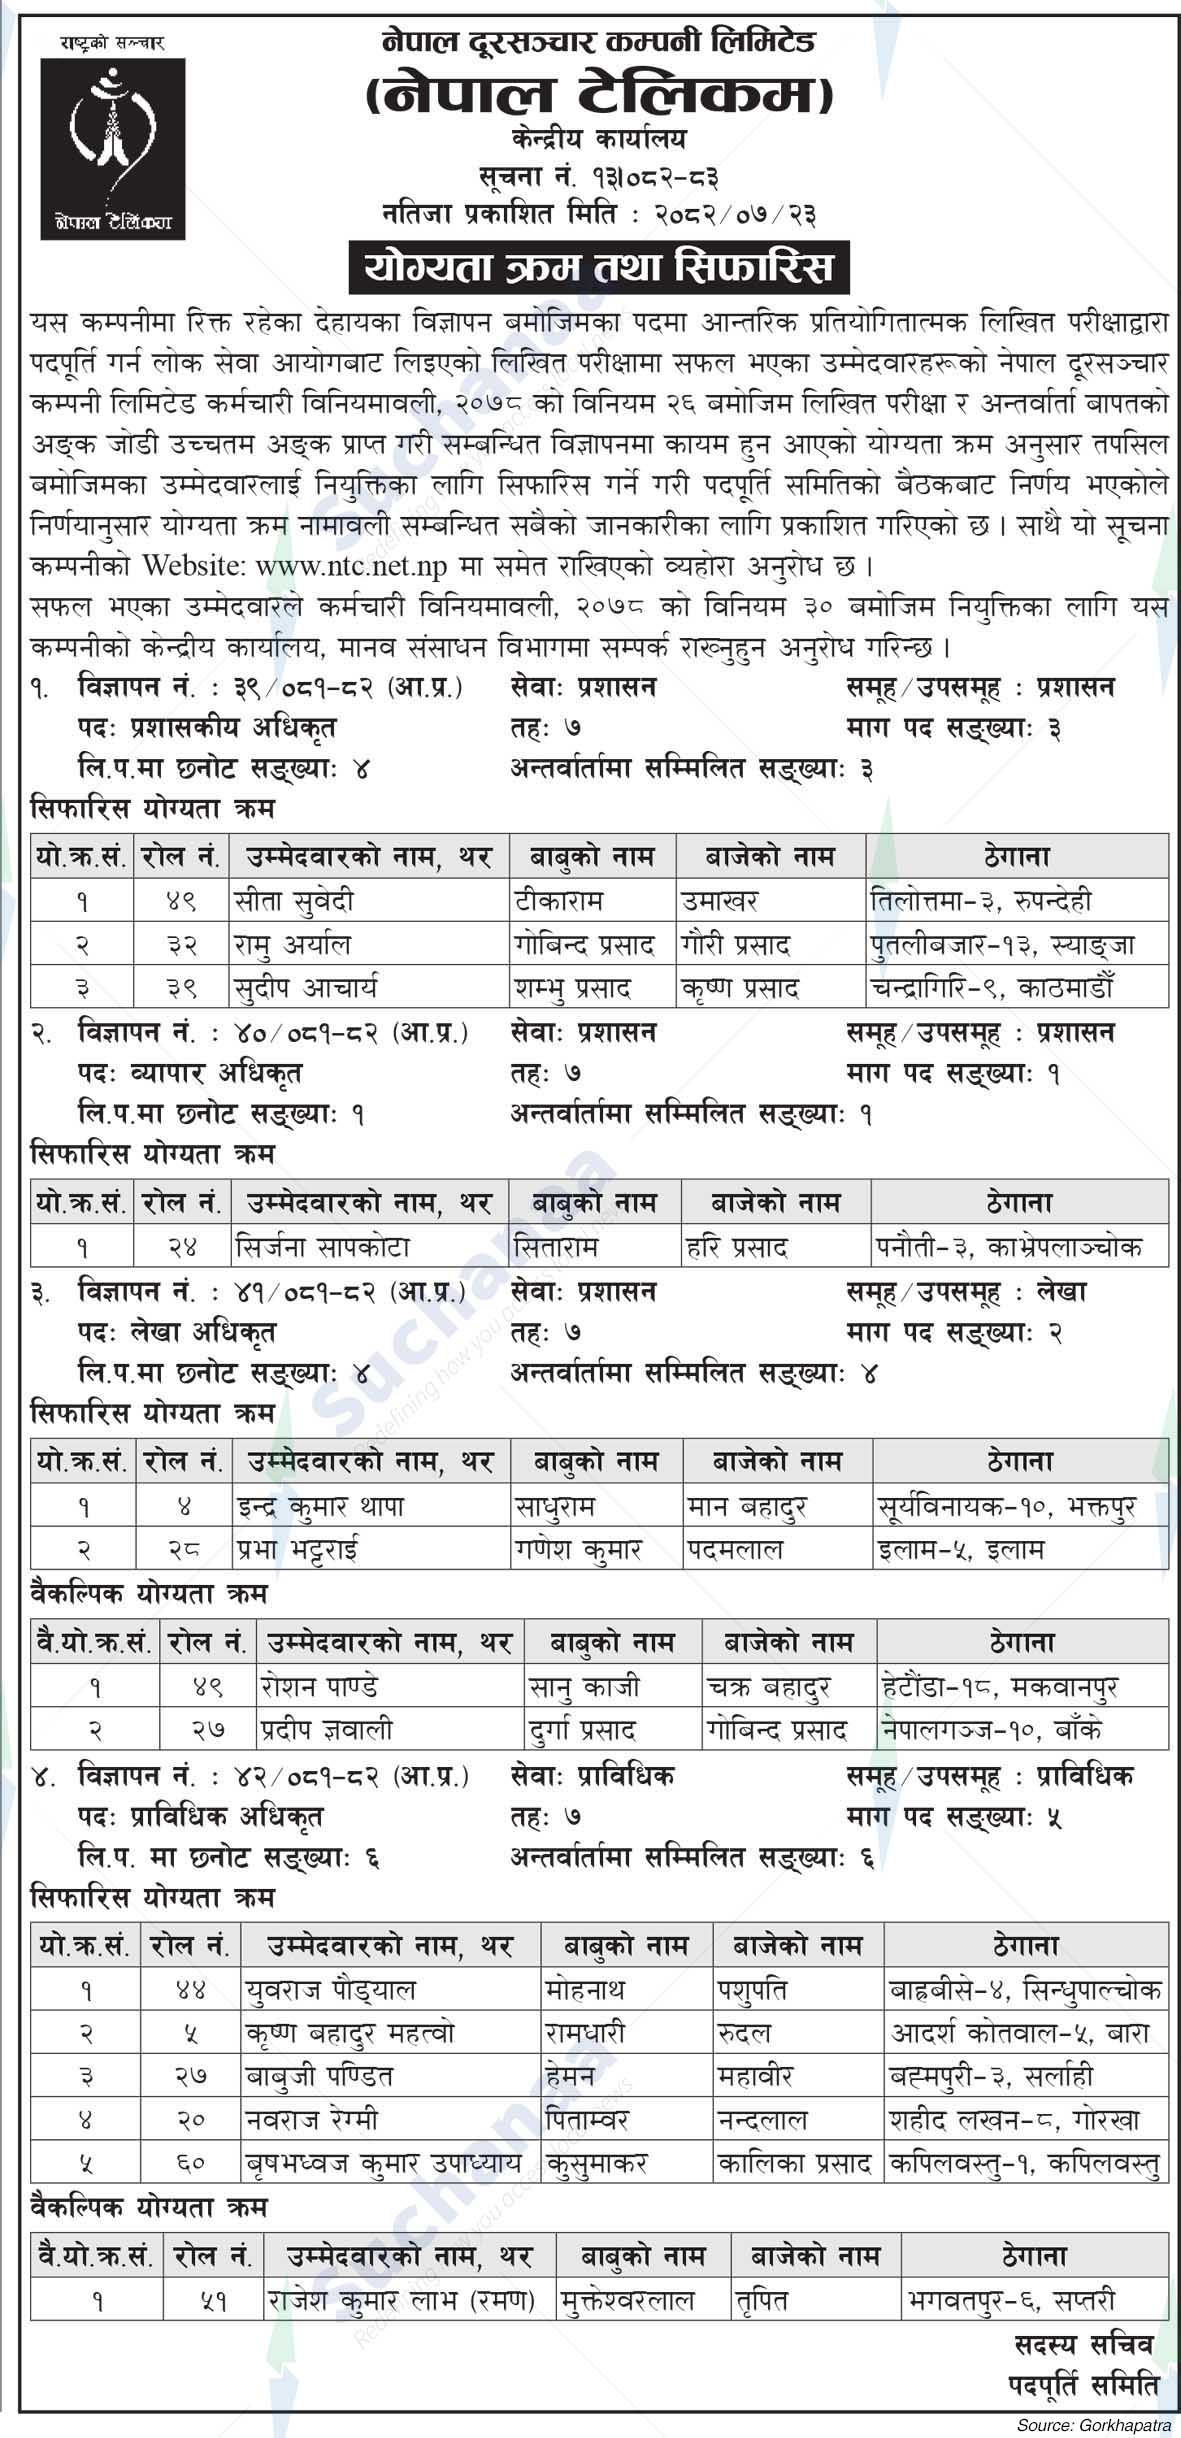 राष्ट्रको सञ्चार
नेपाल टेलिकम
नेपाल दूरसञ्चार कम्पनी लिमिटेड
(नेपाल टेलिकम)
केन्द्रीय कार्यालय
सूचना नं. १३।०८२-८३
नतिजा प्रकाशित मिति : २०८२/०७/२३
योग्यता क्रम तथा सिफारिस
यस कम्पनीमा रिक्त रहेका देहायका विज्ञापन बमोजिमका पदमा आन्तरिक प्रतियोगितात्मक लिखित परीक्षाद्वारा
पदपूर्ति गर्न लोक सेवा आयोगबाट लिइएको लिखित परीक्षामा सफल भएका उम्मेदवारहरूको नेपाल दूरसञ्चार
कम्पनी लिमिटेड कर्मचारी विनियमावली, २०७८ को विनियम २६ बमोजिम लिखित परीक्षा र अन्तर्वार्ता बापतको
अङ्क जोडी उच्चतम अङ्क प्राप्त गरी सम्बन्धित विज्ञापनमा कायम हुन आएको योग्यता क्रम अनुसार तपसिल
बमोजिमका उम्मेदवारलाई नियुक्तिका लागि सिफारिस गर्ने गरी पदपूर्ति समितिको बैठकबाट निर्णय भएकोले
निर्णयानुसार योग्यता क्रम नामावली सम्बन्धित सबैको जानकारीका लागि प्रकाशित गरिएको छ । साथै यो सूचना
कम्पनीको Website: www.ntc.net.np मा समेत राखिएको व्यहोरा अनुरोध छ ।
सफल भएका उम्मेदवारले कर्मचारी विनियमावली, २०७८ को विनियम ३० बमोजिम नियुक्तिका लागि यस
कम्पनीको केन्द्रीय कार्यालय, मानव संसाधन विभागमा सम्पर्क राख्नुहुन अनुरोध गरिन्छ ।
१. विज्ञापन नं. : ३९/०८१-८२ (आ.प्र.) सेवाः प्रशासन समूह/उपसमूह : प्रशासन
पदः प्रशासकीय अधिकृत तहः ७ माग पद सङ्ख्याः ३
लि.प.मा छनोट सङ्ख्याः ४ अन्तर्वार्तामा सम्मिलित सङ्ख्याः ३
सिफारिस योग्यता क्रम
यो.क्र.सं. रोल नं. उम्मेदवारको नाम, थर बाबुको नाम बाजेको नाम ठेगाना
१ ४९ सीता सुवेदी टीकाराम उमाखर तिलोत्तमा-३, रुपन्देही
२ ३२ रामु अर्याल गोबिन्द प्रसाद गौरी प्रसाद पुतलीबजार-१३, स्याङ्जा
३ ३९ सुदीप आचार्य शम्भु प्रसाद कृष्ण प्रसाद चन्द्रागिरि-९, काठमाडौँ
२. विज्ञापन नं. : ४०/०८१-८२ (आ.प्र.) सेवाः प्रशासन समूह/उपसमूह : प्रशासन
पदः व्यापार अधिकृत तहः ७ माग पद सङ्ख्याः १
लि.प.मा छनोट सङ्ख्याः १ अन्तर्वार्तामा सम्मिलित सङ्ख्याः १
सिफारिस योग्यता क्रम
यो.क्र.सं. रोल नं. उम्मेदवारको नाम, थर बाबुको नाम बाजेको नाम ठेगाना
१ २४ सिर्जना सापकोटा सिताराम हरि प्रसाद पनौती-३, काभ्रेपलाञ्चोक
३. विज्ञापन नं. : ४१/०८१-८२ (आ.प्र.) सेवाः प्रशासन समूह/उपसमूह : लेखा
पदः लेखा अधिकृत तहः ७ माग पद सङ्ख्याः २
लि.प.मा छनोट सङ्ख्याः ४ अन्तर्वार्तामा सम्मिलित सङ्ख्याः ४
सिफारिस योग्यता क्रम
यो.क्र.सं. रोल नं. उम्मेदवारको नाम, थर बाबुको नाम बाजेको नाम ठेगाना
१ ४ इन्द्र कुमार थापा साधुराम मान बहादुर सूर्यविनायक-१०, भक्तपुर
२ २८ प्रभा भट्टराई गणेश कुमार पदमलाल इलाम-५, इलाम
वैकल्पिक योग्यता क्रम
वै.यो.क्र.सं. रोल नं. उम्मेदवारको नाम, थर बाबुको नाम बाजेको नाम ठेगाना
१ ४९ रोशन पाण्डे सानु काजी चक्र बहादुर हेटौंडा-१८, मकवानपुर
२ २७ प्रदीप ज्ञवाली दुर्गा प्रसाद गोबिन्द प्रसाद नेपालगञ्ज-१०, बाँके
४. विज्ञापन नं. : ४२/०८१-८२ (आ.प्र.) सेवाः प्राविधिक समूह/उपसमूह : प्राविधिक
पदः प्राविधिक अधिकृत तहः ७ माग पद सङ्ख्याः ५
लि.प. मा छनोट सङ्ख्याः ६ अन्तर्वार्तामा सम्मिलित सङ्ख्याः ६
सिफारिस योग्यता क्रम
यो.क्र.सं. रोल नं. उम्मेदवारको नाम, थर बाबुको नाम बाजेको नाम ठेगाना
१ ४४ युवराज पौड्याल मोहनाथ पशुपति बाह्रबीसे-४, सिन्धुपाल्चोक
२ ५ कृष्ण बहादुर महत्वो रामधारी रुदल आदर्श कोतवाल-५, बारा
३ २७ बाबुजी पण्डित हेमन महावीर बह्मपुरी-३, सर्लाही
४ २० नवराज रेग्मी पिताम्वर नन्दलाल शहीद लखन-८, गोरखा
५ ६० बृषभध्वज कुमार उपाध्याय कुसुमाकर कालिका प्रसाद कपिलवस्तु-१, कपिलवस्तु
वैकल्पिक योग्यता क्रम
वै.यो.क्र.सं. रोल नं. उम्मेदवारको नाम, थर बाबुको नाम बाजेको नाम ठेगाना
१ ५१ राजेश कुमार लाभ (रमण) मुक्तेश्वरलाल तृपित भगवतपुर-६, सप्तरी
सदस्य सचिव
पदपूर्ति समिति
Source: Gorkhapatra
Suchanaa
Redefining how you access local news
Suchanaa
Redefining how you access local news
Suchanaa
Redefining how you access local news